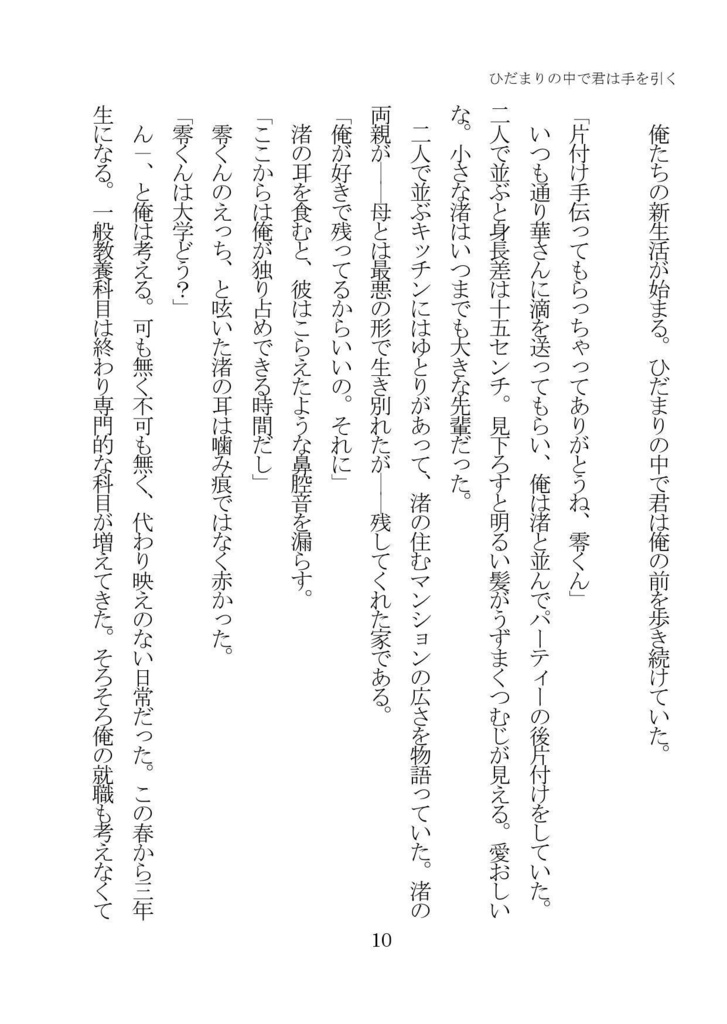 ひだまりの中で君は手を引く
俺たちの新生活が始まる。ひだまりの中で君は俺の前を歩き続けていた。
「片付け手伝ってもらっちゃってありがとうね、零くん」
いつも通り華さんに滴を送ってもらい、俺は渚と並んでパーティーの後片付けをしていた。
二人で並ぶと身長差は十五センチ。見下ろすと明るい髪がうずまくつむじが見える。愛おしい
な。小さな渚はいつまでも大きな先輩だった。
二人で並ぶキッチンにはゆとりがあって、渚の住むマンションの広さを物語っていた。渚の
両親が――母とは最悪の形で生き別れたが――残してくれた家である。
「俺が好きで残ってるからいいの。それに」
渚の耳を食むと、彼はこらえたような鼻腔音を漏らす。
「ここからは俺が独り占めできる時間だし」
零くんのえっち、と呟いた渚の耳は噛み痕ではなく赤かった。
「零くんは大学どう？」
んー、と俺は考える。可も無く不可も無く、代わり映えのない日常だった。この春から三年
生になる。一般教養科目は終わり専門的な科目が増えてきた。そろそろ俺の就職も考えなくて
10